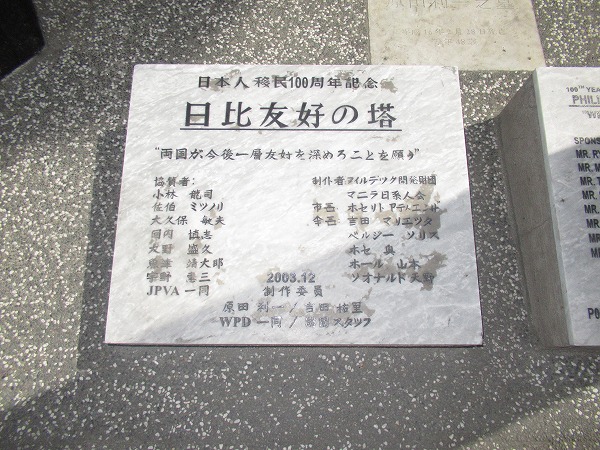 日本人移民100周年記念
日比友好の塔
"両国が今後一層友好を深めることを願う"
協賛者:
小林 龍司
佐伯 ミツノリ
大久保 敏夫
慎志
矢野 盛久
靖大郎
宇野 三
JPVA 一同
制作者 マイルテック開発財団
マニラ日系人会
市長 ホセリト アティエンザ
吉田 マリエッタ
ベルジー ソリス
ホセ 奥
ホール 山本
ソオナルド 天野
2003.12
制作委員
原田 利一 / 吉田 裕里
WPD 一同 / スタッフ
100TH YEA
PHILI
SPONS
MR. R
MR. M
MR. T
MR.
MR.
MR.
MR.
MR
PO